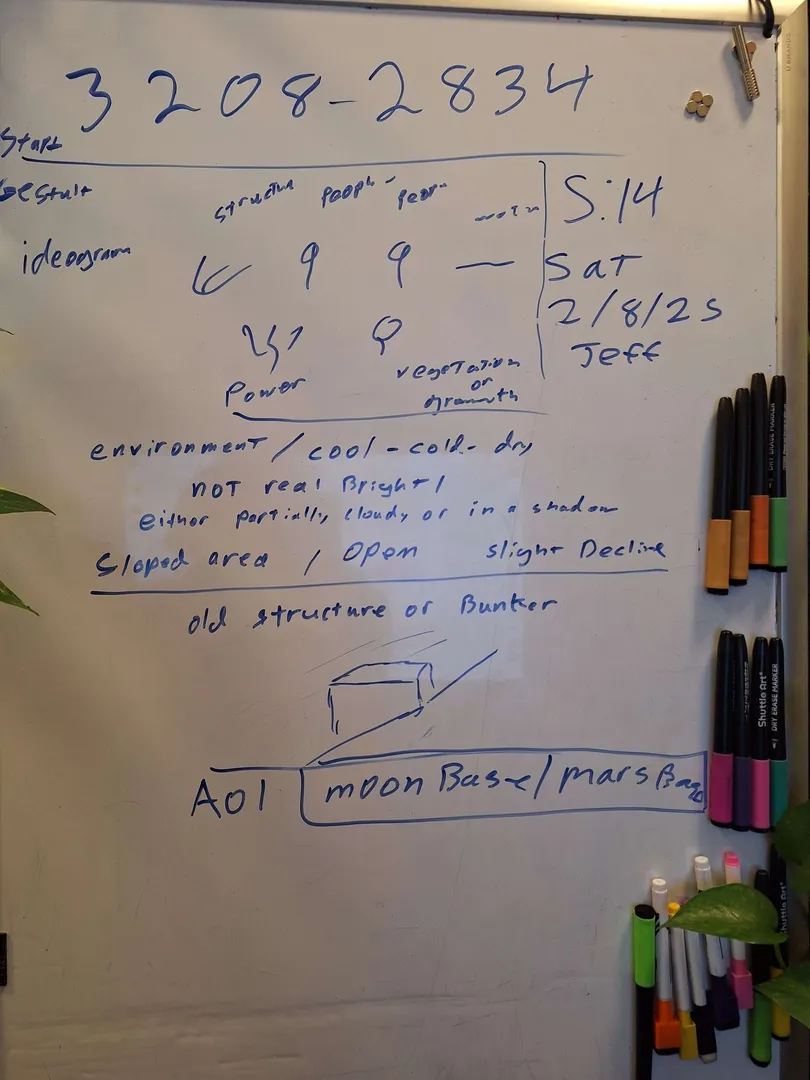 3208-2834
Start
Gestalt
structure people people
ideogram
S:14
Sat
2/8/25
Jeff
Power
vegetation
or
growth
environment / cool - cold - dry
not real Bright /
either partially cloudy or in a shadow
Sloped area / open slight Decline
old structure or Bunker
AOI moon Base / mars Base
Shuttle Art
DRY ERASE MARKER
DRY ERASE MARKER
Shuttle Art